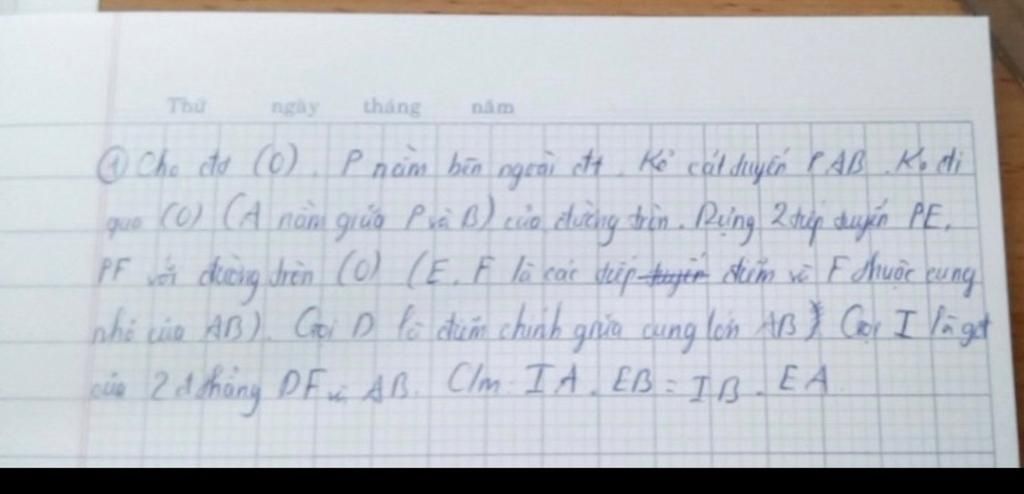 Thứ ngày tháng năm
① Cho đt (O). P nằm bên ngoài đt. Kẻ cát tuyến PAB. Ko đi
qua (O) (A nằm giữa P và B) của đường tròn. Dựng 2 tiếp tuyến PE,
PF với đường tròn (O) (E, F là các tiếp điểm và F thuộc cung
nhỏ của AB). Gọi D là điểm chính giữa cung lớn AB) Gọi I là gđ
của 2 đ thẳng DF và AB. C/m: IA. EB = IB. EA